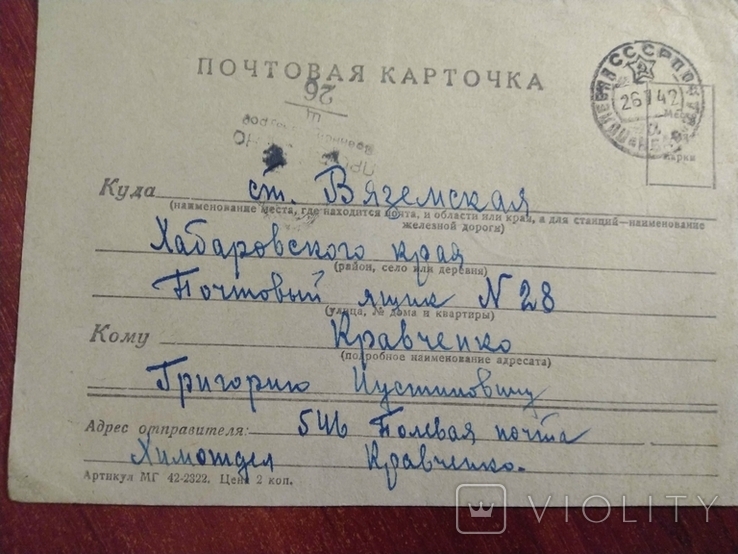 ПОЧТОВАЯ КАРТОЧКА
СССР
26 1 42
марки
26
Щ
Куда ст. Вяземская
(наименование места, где находится почта, и области или края, а для станций—наименование
железной дороги)
Хабаровского края
(район, село или деревня)
Почтовый ящик N 28
(улица, № дома и квартиры)
Кому Кравченко
(подробное наименование адресата)
Григорию Иустиновичу
Адрес отправителя: 546 Полевая почта
Химотдел Кравченко.
Артикул МГ 42-2322. Цена 2 коп.
VIOLITY